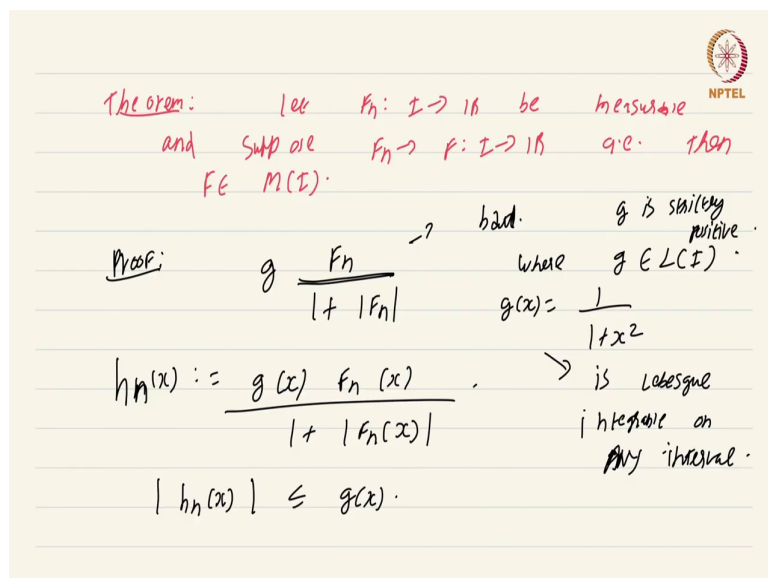 NPTEL
Theorem: let Fn: I → IR be measurable
and suppose Fn → F: I → IR a.e. then
F ∈ M(I).
Proof: g Fn / 1 + |Fn| → bad. where g ∈ L(I).
g is strictly positive.
g(x) = 1 / 1 + x²
hn(x) := g(x) Fn(x) / 1 + |Fn(x)| .
→ is Lebesgue
integrable on
any interval.
| hn(x) | ≤ g(x).